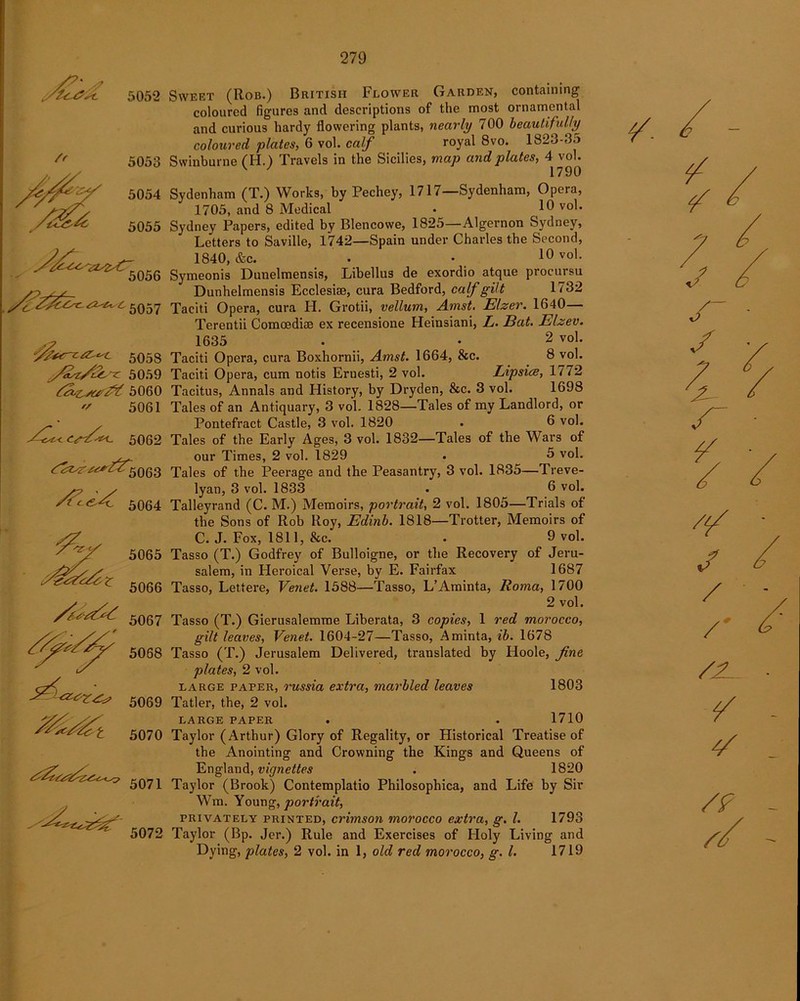 279
5052 Sweet (Rob.) British Flower Garden, containing
coloured figures and descriptions of the most ornamental
and curious hardy flowering plants, nearly 700 beautifully
coloured plates, 6 vol. calf royal 8vo. 1823-35
5053 Swinburne (H.) Travels in the Sicilies, map and plates, 4 vol.
1790
5054 Sydenham (T.) Works, by Pechey, 1717—Sydenham, Opera,
1705, and 8 Medical . 10 vol.
5055 Sydney Papers, edited by Blencowe, 1825—Algernon Sydney,
Letters to Saville, 1742—Spain under Charles the Second,
1840, &c. . . 10 vol.
5056 Symeonis Dunelmensis, Libellus de exordio atque procursu
Dunhelmensis Ecclesiæ, cura Bedford, calf gilt 1732
5057 Taciti Opera, cura H. Grotii, vellum, Amst. Elzer. 1640—
Terentii Comœdiæ ex recensione Heinsiani, L. Bat. Elzev.
1635 . . 2 vol.
5058 Taciti Opera, cura Boxhornii, Amst. 1664, &c. . 8 vol.
5059 Taciti Opera, cum notis Ernesti, 2 vol. Lipsiæ, 1772
5060 Tacitus, Annals and History, by Dryden, &c. 3 vol. 1698
5061 Tales of an Antiquary, 3 vol. 1828—Tales of my Landlord, or
Pontefract Castle, 3 vol. 1820 . 6 vol.
5062 Tales of the Early Ages, 3 vol. 1832—Tales of the Wars of
our Times, 2 vol. 1829 . 5 vol.
5063 Tales of the Peerage and the Peasantry, 3 vol. 1835—Treve-
lyan, 3 vol. 1833 . 6 vol.
5064 Talleyrand (C. M.) Memoirs, portrait, 2 vol. 1805—Trials of
the Sons of Rob Roy, Edinb. 1818—Trotter, Memoirs of
C. J. Fox, 1811, &c. . 9 vol.
5065 Tasso (T.) Godfrey of Bulloigne, or the Recovery of Jeru-
salem, in Heroical Verse, by E. Fairfax 1687
5066 Tasso, Lettere, Venet. 1588—Tasso, L'Aminta, Roma, 1700
2 vol.
5067 Tasso (T.) Gierusalemme Liberata, 3 copies, 1 red morocco,
gilt leaves, Venet. 1604-27—Tasso, Aminta, ib. 1678
5068 Tasso (T.) Jerusalem Delivered, translated by Hoole, fine
plates, 2 vol.
LARGE PAPER, russia extra, marbled leaves 1803
5069 Tatler, the, 2 vol.
LARGE PAPER . . 1710
5070 Taylor (Arthur) Glory of Regality, or Historical Treatise of
the Anointing and Crowning the Kings and Queens of
England, vignettes . 1820
5071 Taylor (Brook) Contemplatio Philosophica, and Life by Sir
Wm. Young, portrait,
PRIVATELY PRINTED, crimson morocco extra, g. l. 1793
5072 Taylor (Bp. Jer.) Rule and Exercises of Holy Living and
Dying, plates, 2 vol. in 1, old red morocco, g. l. 1719